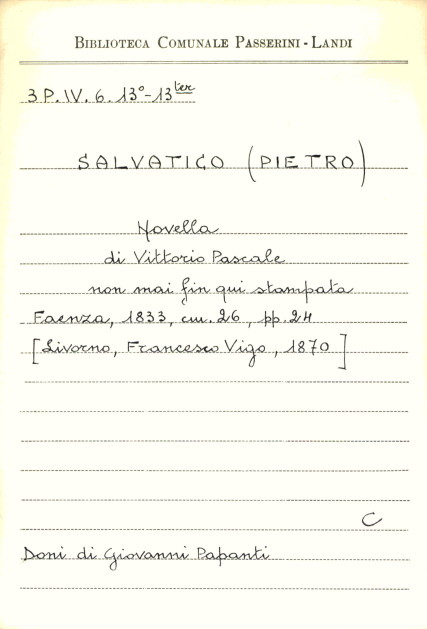 BIBLIOTECA COMUNALE PASSERINI - LANDI
3 P. IV. 6. 13º-13ter
SALVATICO (PIETRO)
Novella
di Vittorio Pascale
non mai fin qui stampata
Faenza, 1833, cm. 26, pp. 24
[Livorno, Francesco Vigo, 1870]
C
Doni di Giovanni Papanti